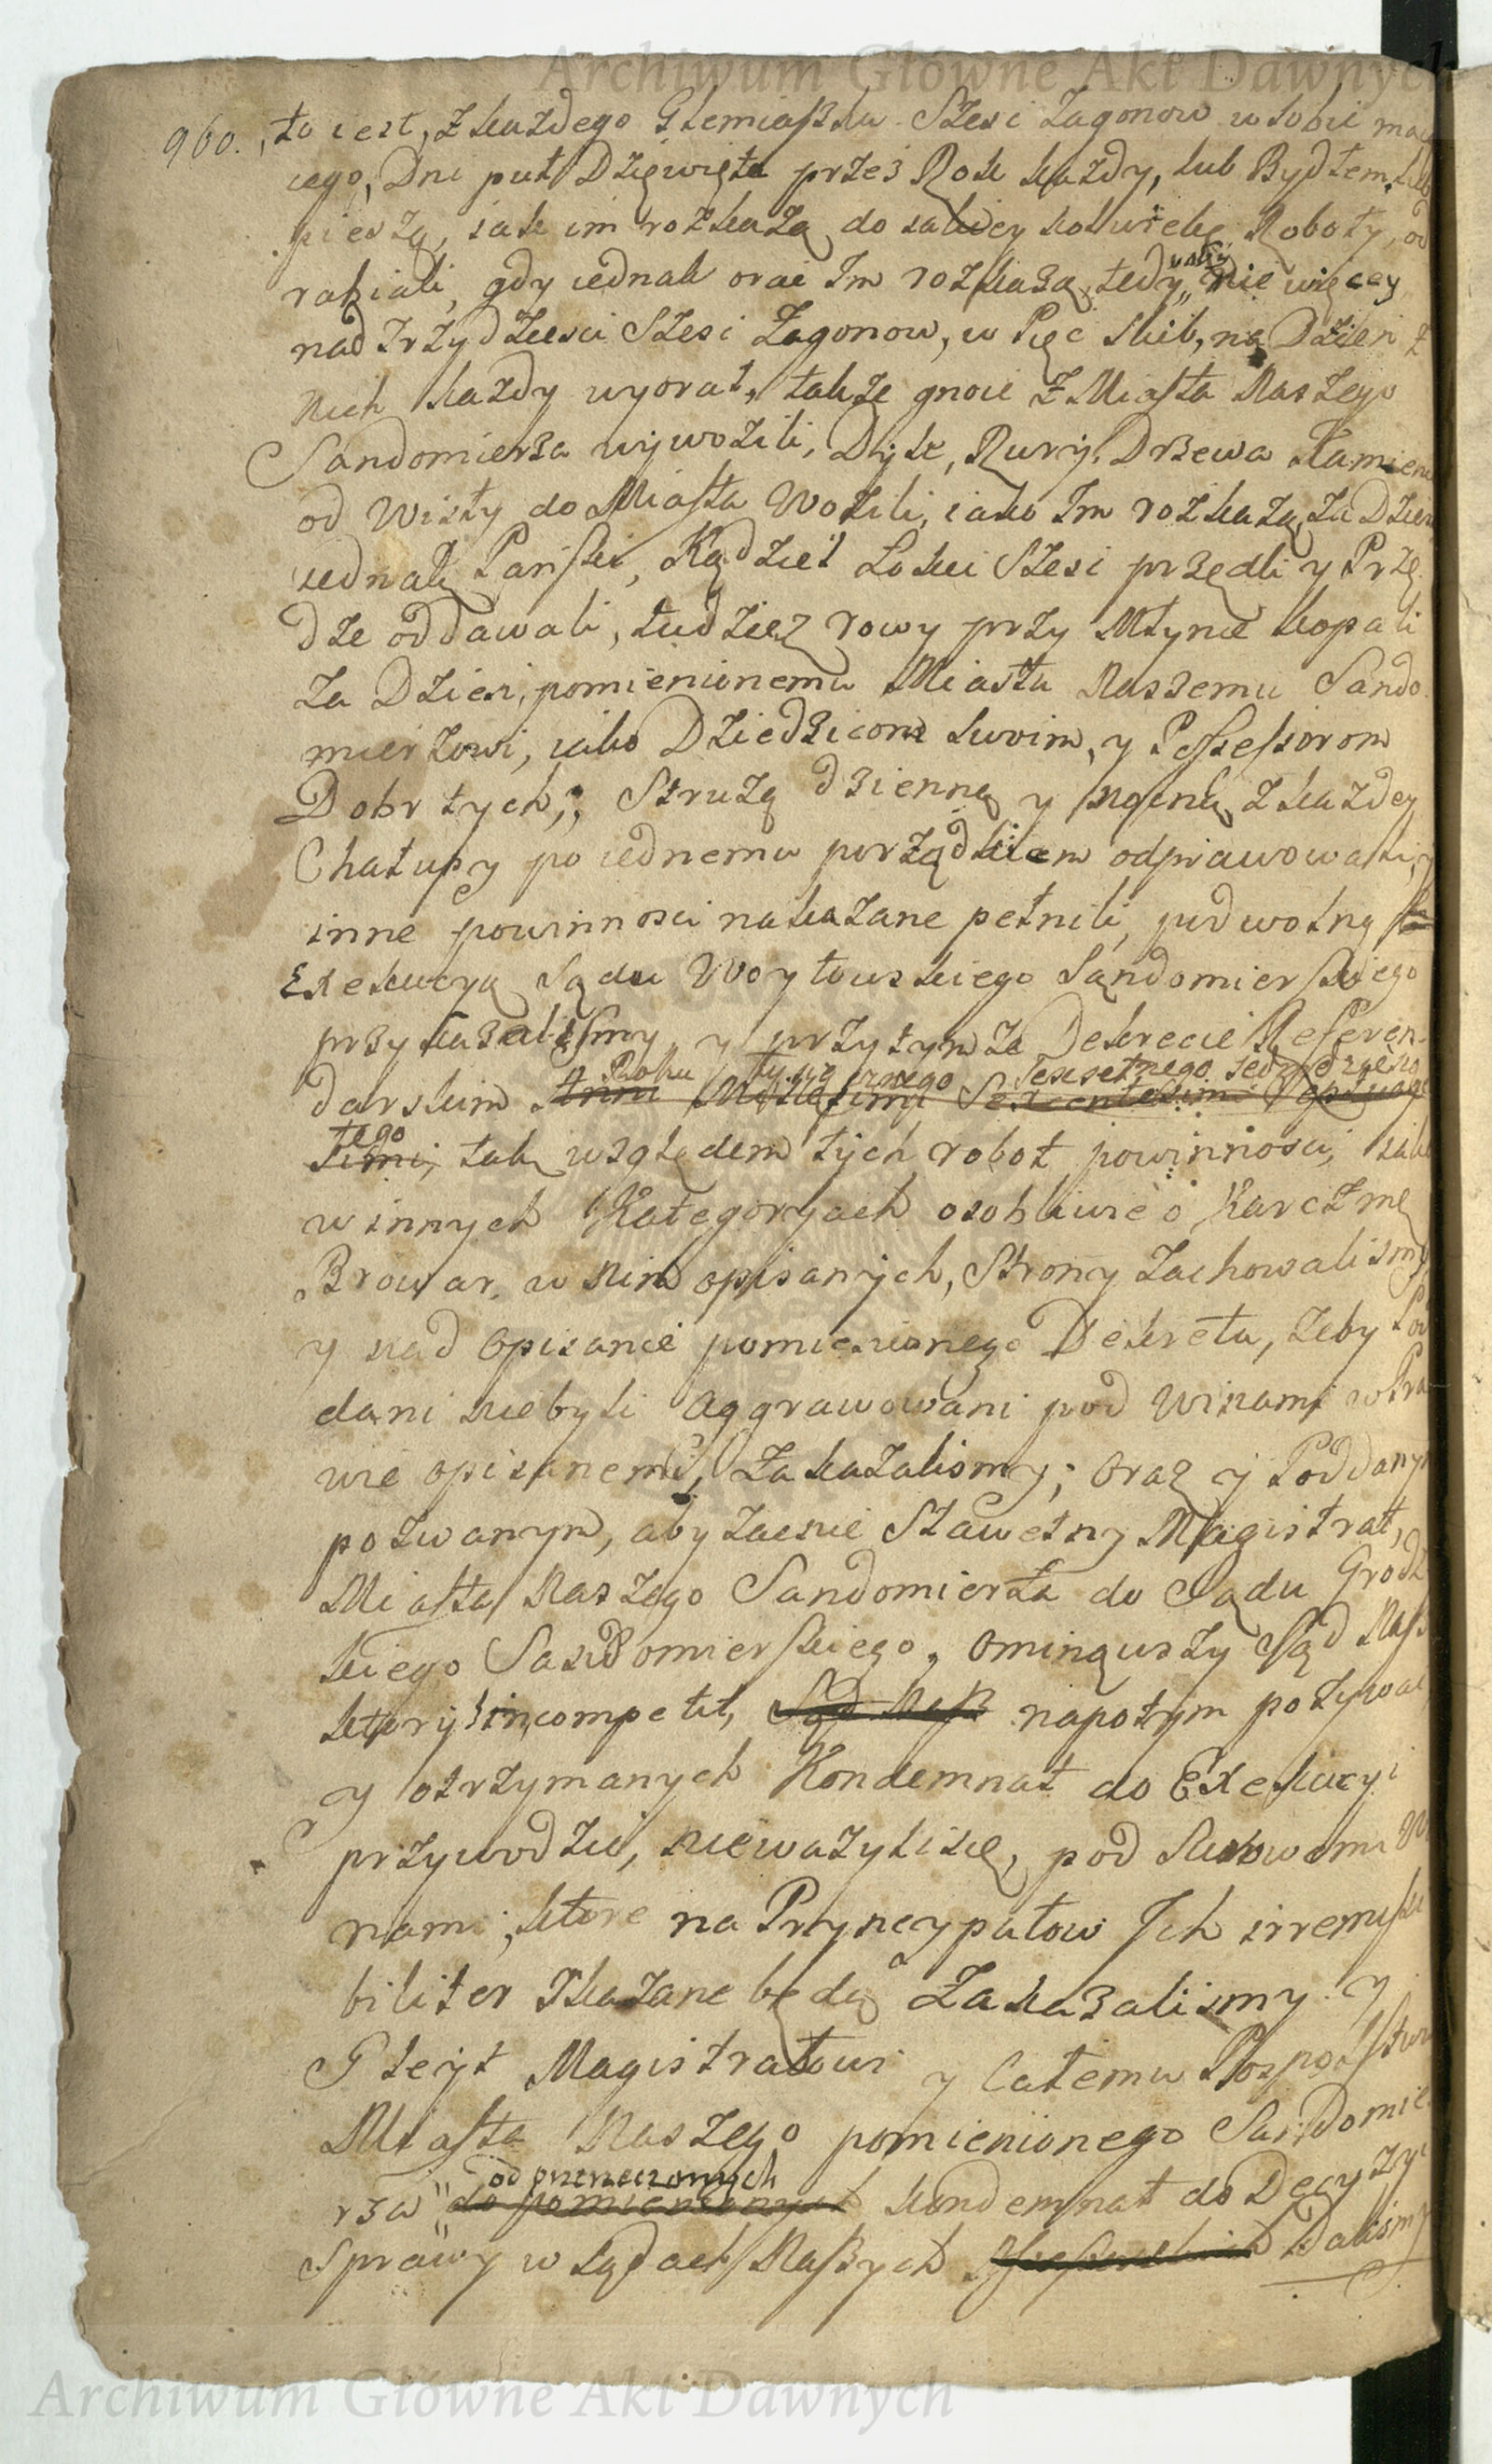 Archiwum Główne Akt Dawnych
960. to iest, z każdego Stemiaszka Szesć Zagonow w sobie maią
cego, Dni puł Dziewięta przez Rok każdy, lub Bydłem, lub
pieszą, iak im rozkażą do iakiey kolwiek Roboty, od
rabiali, gdy iednak orać Im rozkażą, tedy nie więcey
nad Trzydziesci Szesć Zagonow, w Pięć skib, na Dzień z
Nich każdy wyorał, także gnoie z Miasta Naszego
Sandomierza wywozili, Dyle, Rury, Drzewa Kamienie
od Wisły do Miasta Wozili, iako Im rozkażą, za Dzień
iednak Pański, Kądziel Łokci Szesć przędli y Przę
dze oddawali, tudziesz rowy przy Młynie kopali
za Dzień, pomienionemu Miastu Naszemu Sando
mierzowi, iako Dziedzicom swoim, y Possessorom
Dobr tych; Strużą dzienną y nocną, z każdey
Chałupy po iednemu porządkiem odprawowali, y
inne powinnosci nakazane pełnili, pod wolną
Exekucyą Sądu Woytowskiego Sandomierskiego
przykazalismy, y przytym że Dekrecie Referen
darskim Roku tysiącznego Szescsetnego siedmdziesią
Anni Millesimi Sexcentesimi Septuage
tego
simi, tak względem tych robot powinnosci, iako
w innych Kategoryach osobliwie o Karczmę
Browar, w nim opisanych, Strony zachowalismy
y nad Opisanie pomienionego Dekretu, żeby Pod
dani niebyli aggrawowani pod Winami w Pra
wie opisanemi, Zakazalismy; oraz y Poddanym
pozwanym, aby zacnie Sławetny Magistrat,
Miasta Naszego Sandomierza do Sądu Grodz
kiego Sandomierskiego, ominąwszy Sąd Nasz
ktory incompetit, Sąd Nasz napotym pozywać,
y otrzymanych Kondemnat do Exekucyi
przywodzić, nieważyli się, pod Surowemi Wi
nami, ktore na Pryncypałow Ich irremissi
biliter Skazane będą Zakazalismy y
Gleyt Magistratowi y Całemu Pospolstwu
Miasta Naszego pomienionego Sandomie
od przerzeczonych
rza do pomienionych kondemnat do Decyzyi
Sprawy w Sądach Naszych Assessorskich Dalismy
Archiwum Główne Akt Dawnych